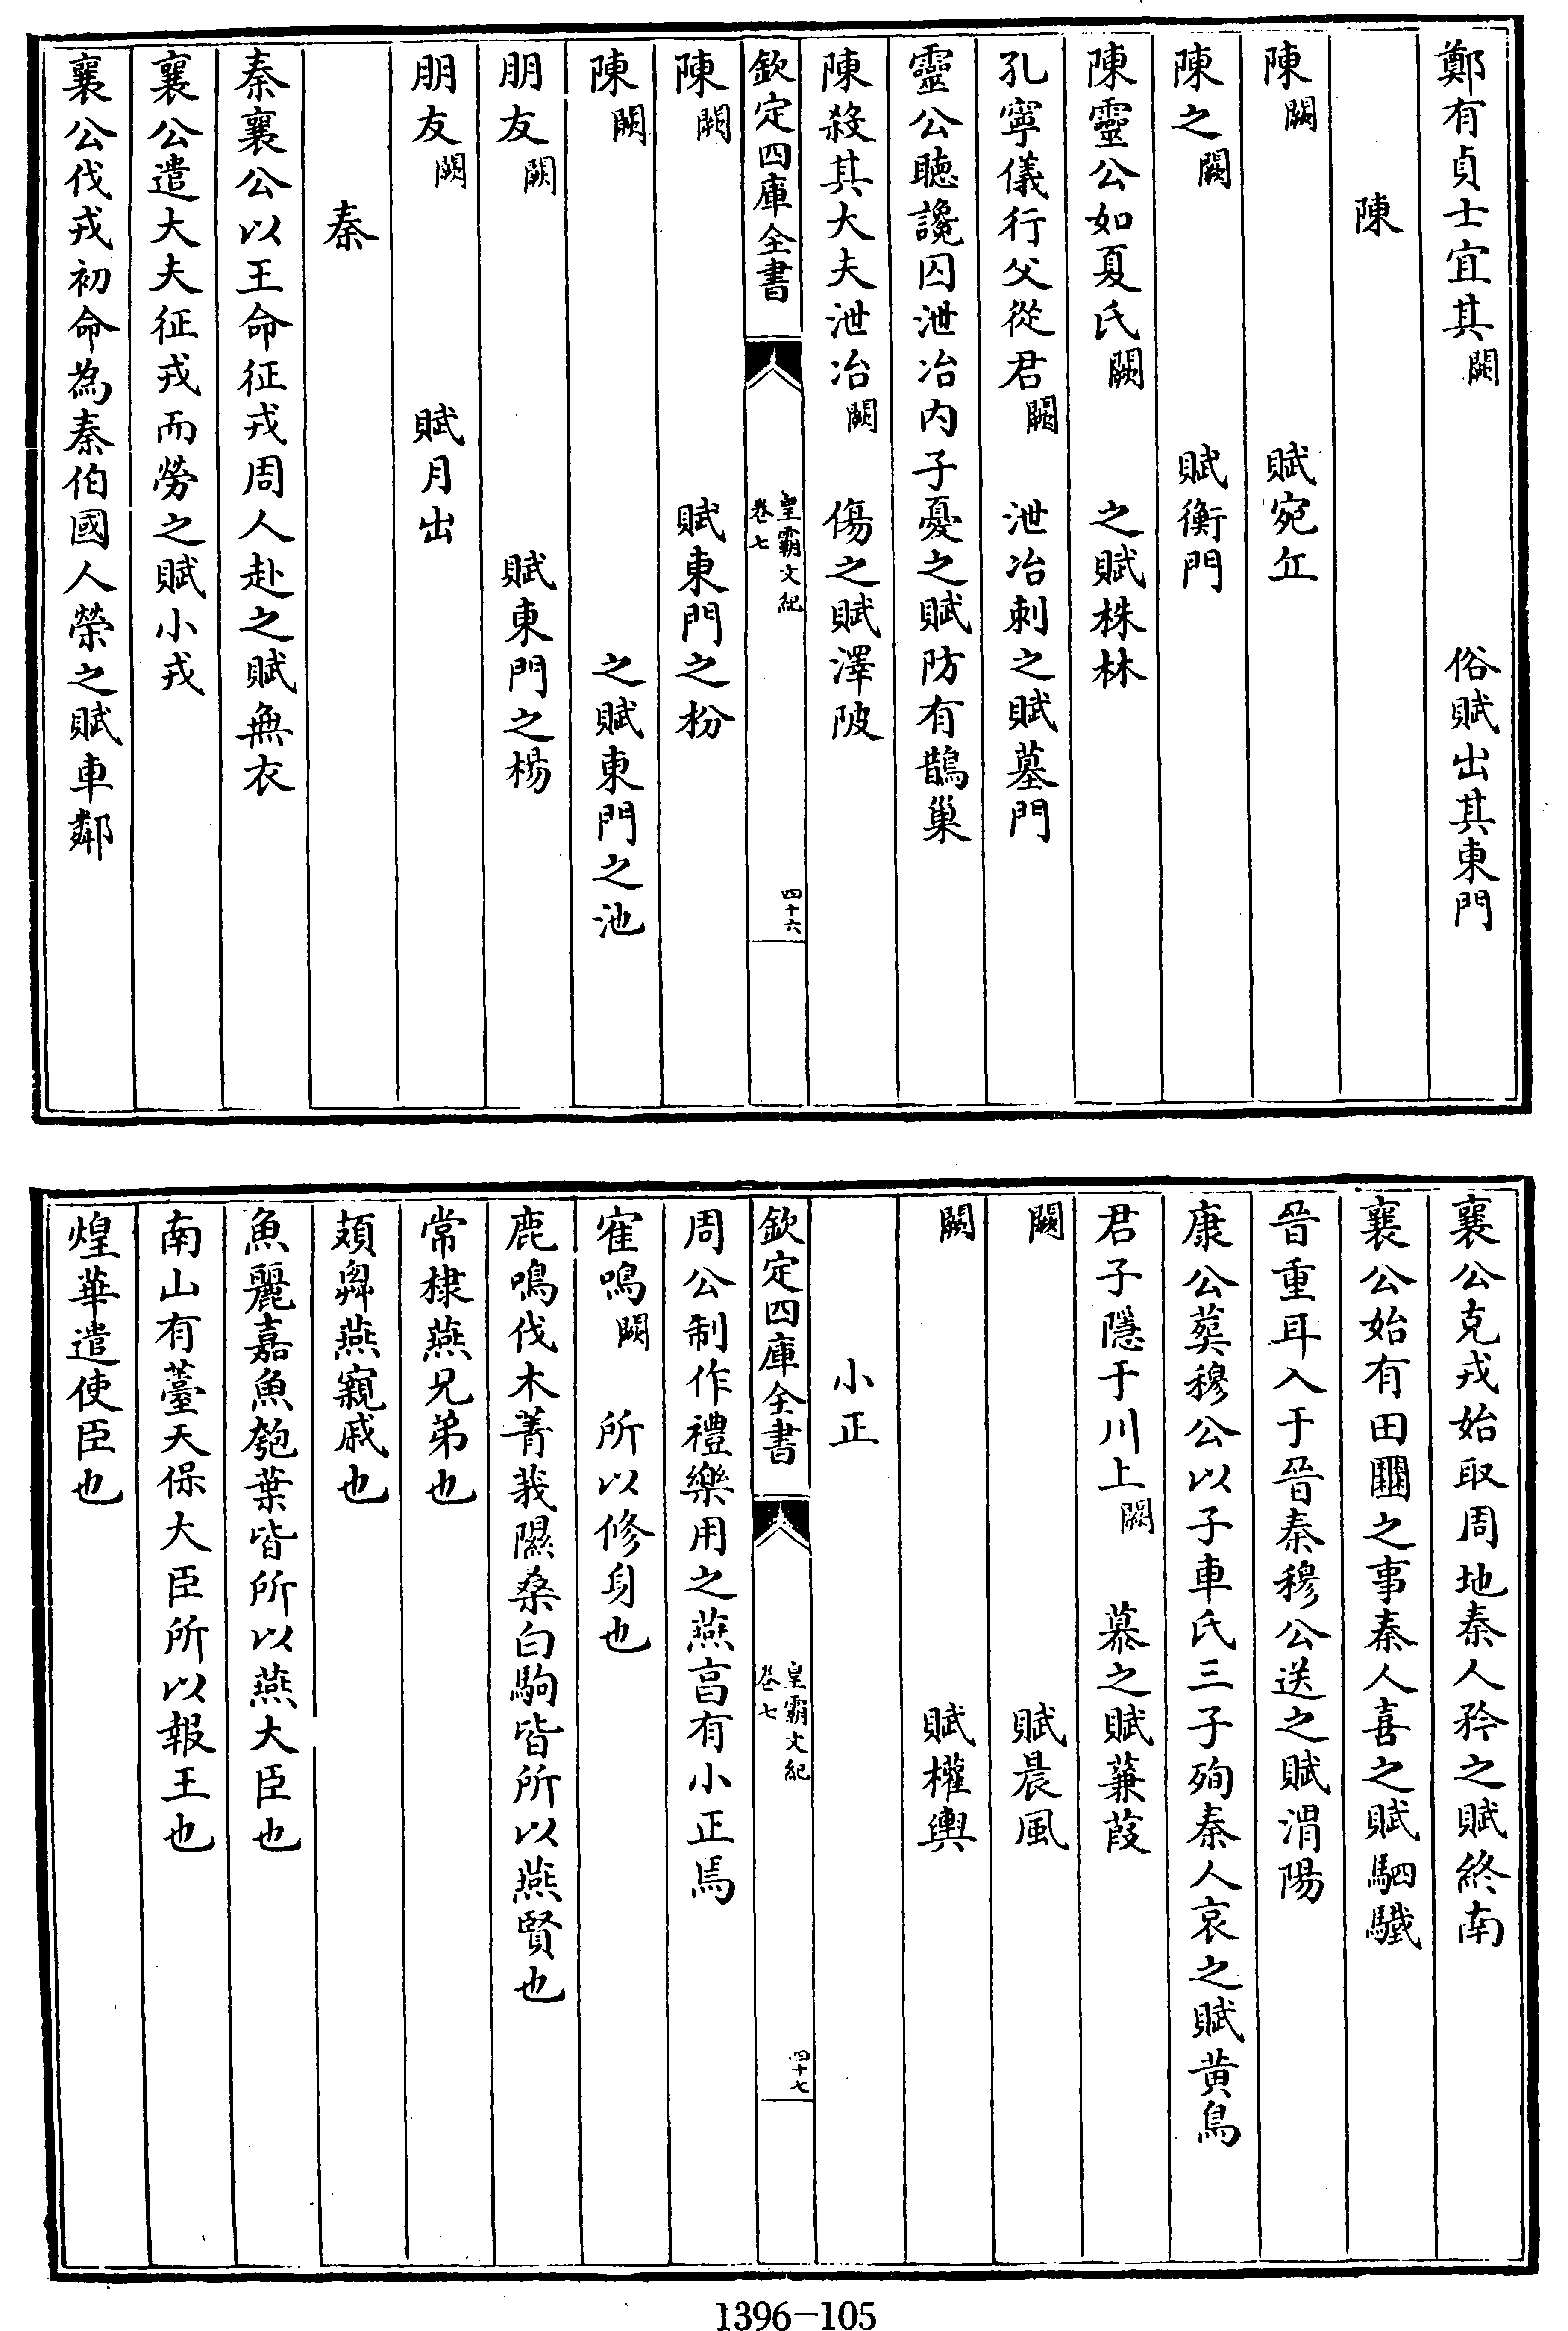 鄭有貞士宜其闕俗賦出其東門
陳
陳闕賦宛丘
陳之闕賦衡門
陳靈公如夏氏闕之賦株林
孔寧儀行父從君闕泄冶刺之賦墓門
靈公聽讒囚泄冶內子憂之賦防有鵲巢
陳殺其大夫泄冶闕傷之賦澤陂
欽定四庫全書
皇霸文紀
卷七
四十六
陳闕賦東門之枌
陳闕之賦東門之池
朋友闕賦東門之楊
朋友闕賦月出
秦
秦襄公以王命征戎周人赴之賦無衣
襄公遣大夫征戎而勞之賦小戎
襄公伐戎初命為秦伯國人榮之賦車鄰
襄公克戎始取周地秦人矜之賦終南
襄公始有田之事秦人喜之賦駟驖
晉重耳入于晉秦穆公送之賦渭陽
康公葬穆公以子車氏三子殉秦人哀之賦黃鳥
君子隱于川上闕慕之賦蒹葭
闕賦晨風
闕賦權輿
小正
欽定四庫全書
皇霸文紀
卷七
四十七
周公制作禮樂用之燕亯有小正焉
寉鳴闕所以修身也
鹿鳴伐木菁莪隰桑白駒皆所以燕賢也
常棣燕兄弟也
頍弁燕親戚也
魚麗嘉魚匏葉皆所以燕大臣也
南山有薹天保大臣所以報王也
煌華遣使臣也
1396-105